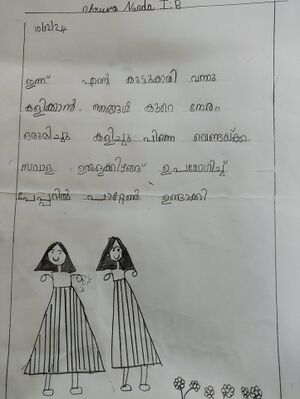 Dhruva Nanda I.B
ഇന്ന് എൻ്റെ കൂട്ടുകാരി വന്നു
കളിക്കാൻ. ഞങ്ങൾ കുറെ നേരം
ഒരുമിച്ചു കളിച്ചു പിന്നെ വെണ്ടയ്ക്ക
സവാള ഉരുളക്കിഴങ്ങ് ഉപയോഗിച്ച്
പേപ്പറിൽ പാറ്റേൺ ഉണ്ടാക്കി